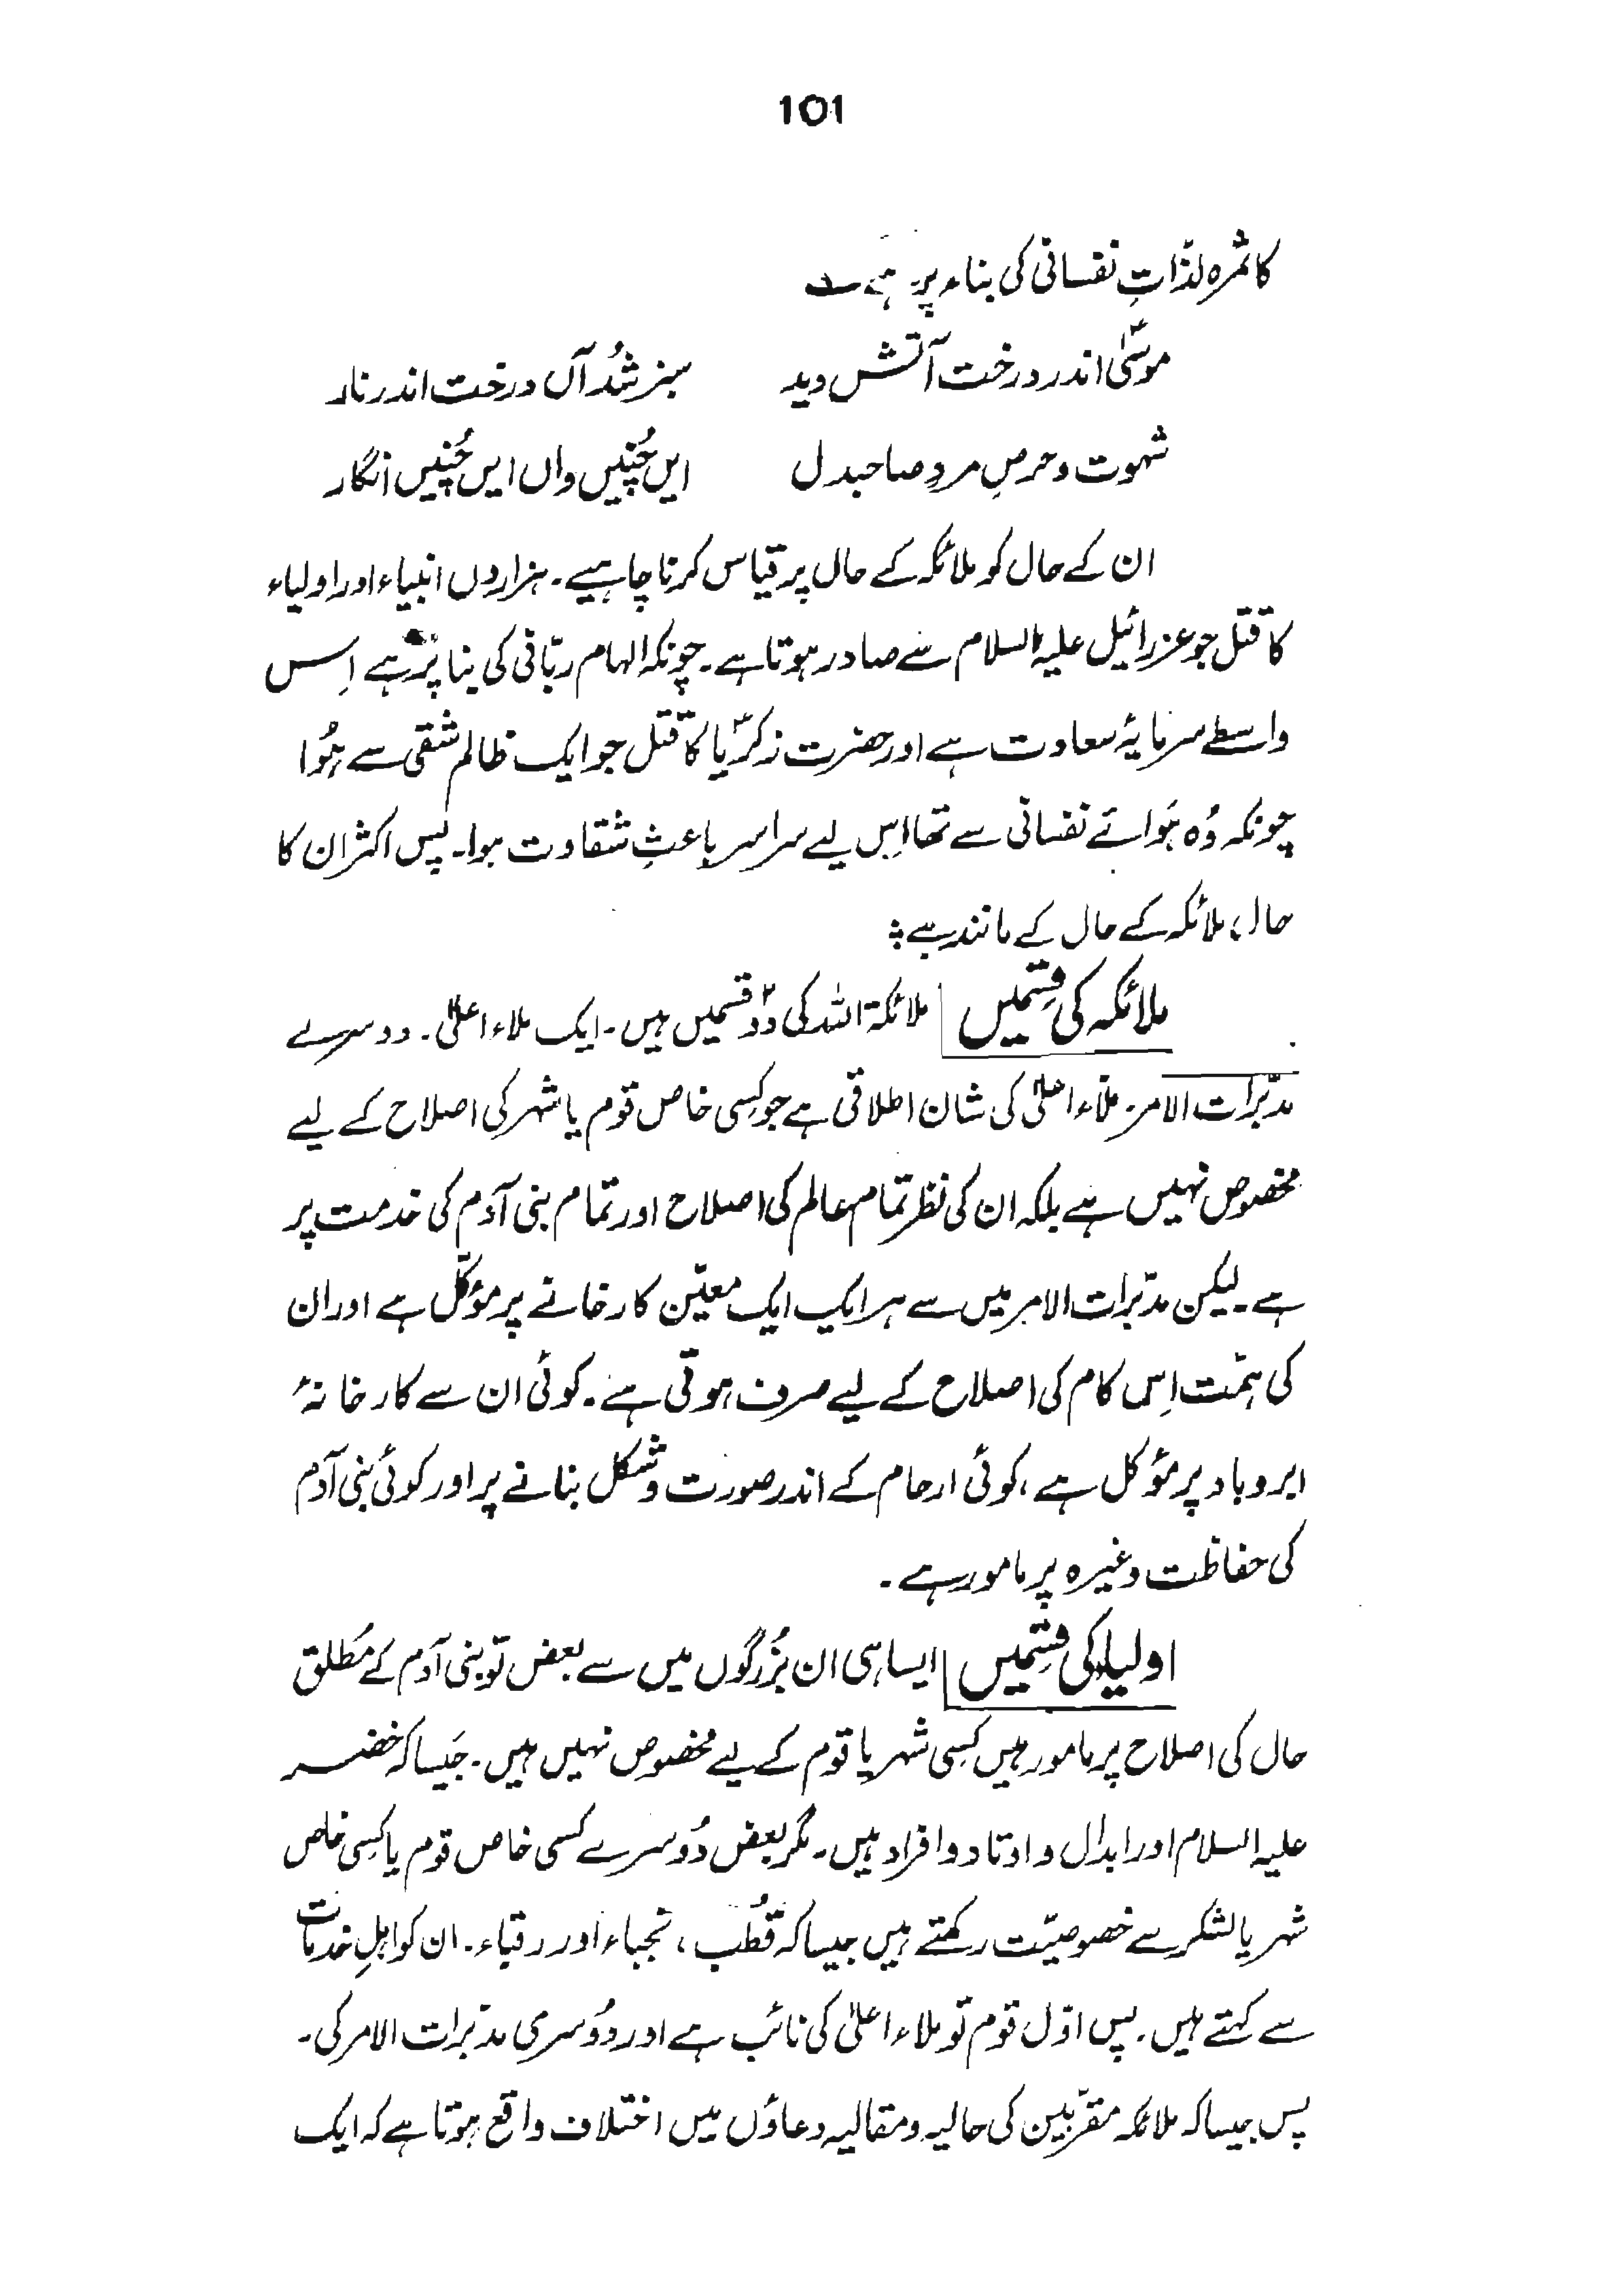 101
کا ثمرہ لذاتِ نفسانی کی بناء پر ہے ؎
موسیٰؑ اندر درخت آتش دید سبز شُد آں درخت اندر نار
شہوت و حرصِ مردِ صاحبدل ایں چُنیں واں ایں چُنیں انگار
ان کے حال کو ملائکہ کے حال پر قیاس کرنا چاہیے۔ ہزاروں انبیاء اور اولیاء
کا قتل جو عزرائیل علیہ السلام سے صادر ہوتا ہے۔ چونکہ الہام ربّانی کی بنا پر ہے اِس
واسطے سرمایۂ سعادت ہے اور حضرت زکریّاؑ کا قتل جو ایک ظالم شقی سے ہُوا
چونکہ وُہ ہَوائے نفسانی سے تھا اِس لیے سراسر باعثِ شقاوت ہوا۔ پس اکثر ان کا
حال، ملائکہ کے حال کے مانند ہے ؞
ملائکہ کی قِسمیں ملائکۃ اللہ کی دو۲ قسمیں ہیں۔ ایک ملاء اعلیٰ۔ دوسرے
مدبّرات الامر۔ ملاء اعلیٰ کی شان اطلاقی ہے جو کسِی خاص قوم یا شہر کی اصلاح کے لیے
مخصوص نہیں ہے بلکہ ان کی نظر تمام عالم کی اصلاح اور تمام بنی آدم کی خدمت پر
ہے۔ لیکن مدبّرات الامر میں سے ہر ایک ایک معیّن کارخانے پر مؤکّل ہے اور ان
کی ہمّت اِس کام کی اصلاح کے لیے صرف ہوتی ہے۔ کوئی ان سے کارخانۂ
ابر و باد پر مؤکل ہے، کوئی ارحام کے اندر صورت و شکل بنانے پر اور کوئی بنی آدم
کی حفاظت وغیرہ پر مامور ہے۔
اولیاء کی قِسمیں ایسا ہی ان بزُرگوں میں سے بعض تو بنی آدم کے مُطلق
حال کی اصلاح پر مامور ہیں کسِی شہر یا قوم کے لیے مخصوص نہیں ہیں۔ جَیسا کہ خضر
علیہ السلام اور ابدال و اوتاد و افراد ہیں۔ مگر بعض دُوسرے کسی خاص قوم یا کسِی خاص
شہر یا لشکر سے خصوصیّت رکھتے ہیں جیسا کہ قُطب، نجباء اور رقباء۔ ان کو اہلِ خدمات
سے کہتے ہیں۔ پس اوّل قوم تو ملاء اعلیٰ کی نائب ہے اور دُوسری مدبّرات الامر کی۔
پس جیسا کہ ملائکہ مقرّبین کی حالیہ و مقالیہ دعاؤں میں اختلاف واقع ہوتا ہے کہ ایک